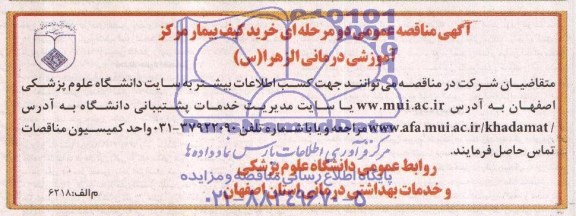 آگهی مناقصه عمومی دو مرحله ای خرید کیف بیمار مرکز
آموزشی درمانی الزهرا(س)
متقاضیان شرکت در مناقصه می توانند جهت کسب اطلاعات بیشتر به سایت دانشگاه علوم پزشکی
اصفهان به آدرس ww.mui.ac.ir یا سایت مدیریت خدمات پشتیبانی دانشگاه به آدرس
www.afa.mui.ac.ir/khadamat/ مراجعه و یا با شماره تلفن ۳۷۹۲۲۰۹۰-۰۳۱ واحد کمیسیون مناقصات
تماس حاصل فرمایند.
مرکز فرآوری اطلاعات پارس نماد داده ها
روابط عمومی دانشگاه علوم پزشکی
پایگاه اطلاع رسانی مناقصه و مزایده
و خدمات بهداشتی درمانی استان اصفهان
م الف: ۶۲۱۸
۰۲۱-۸۸۳۴۹۶۷۰-۵